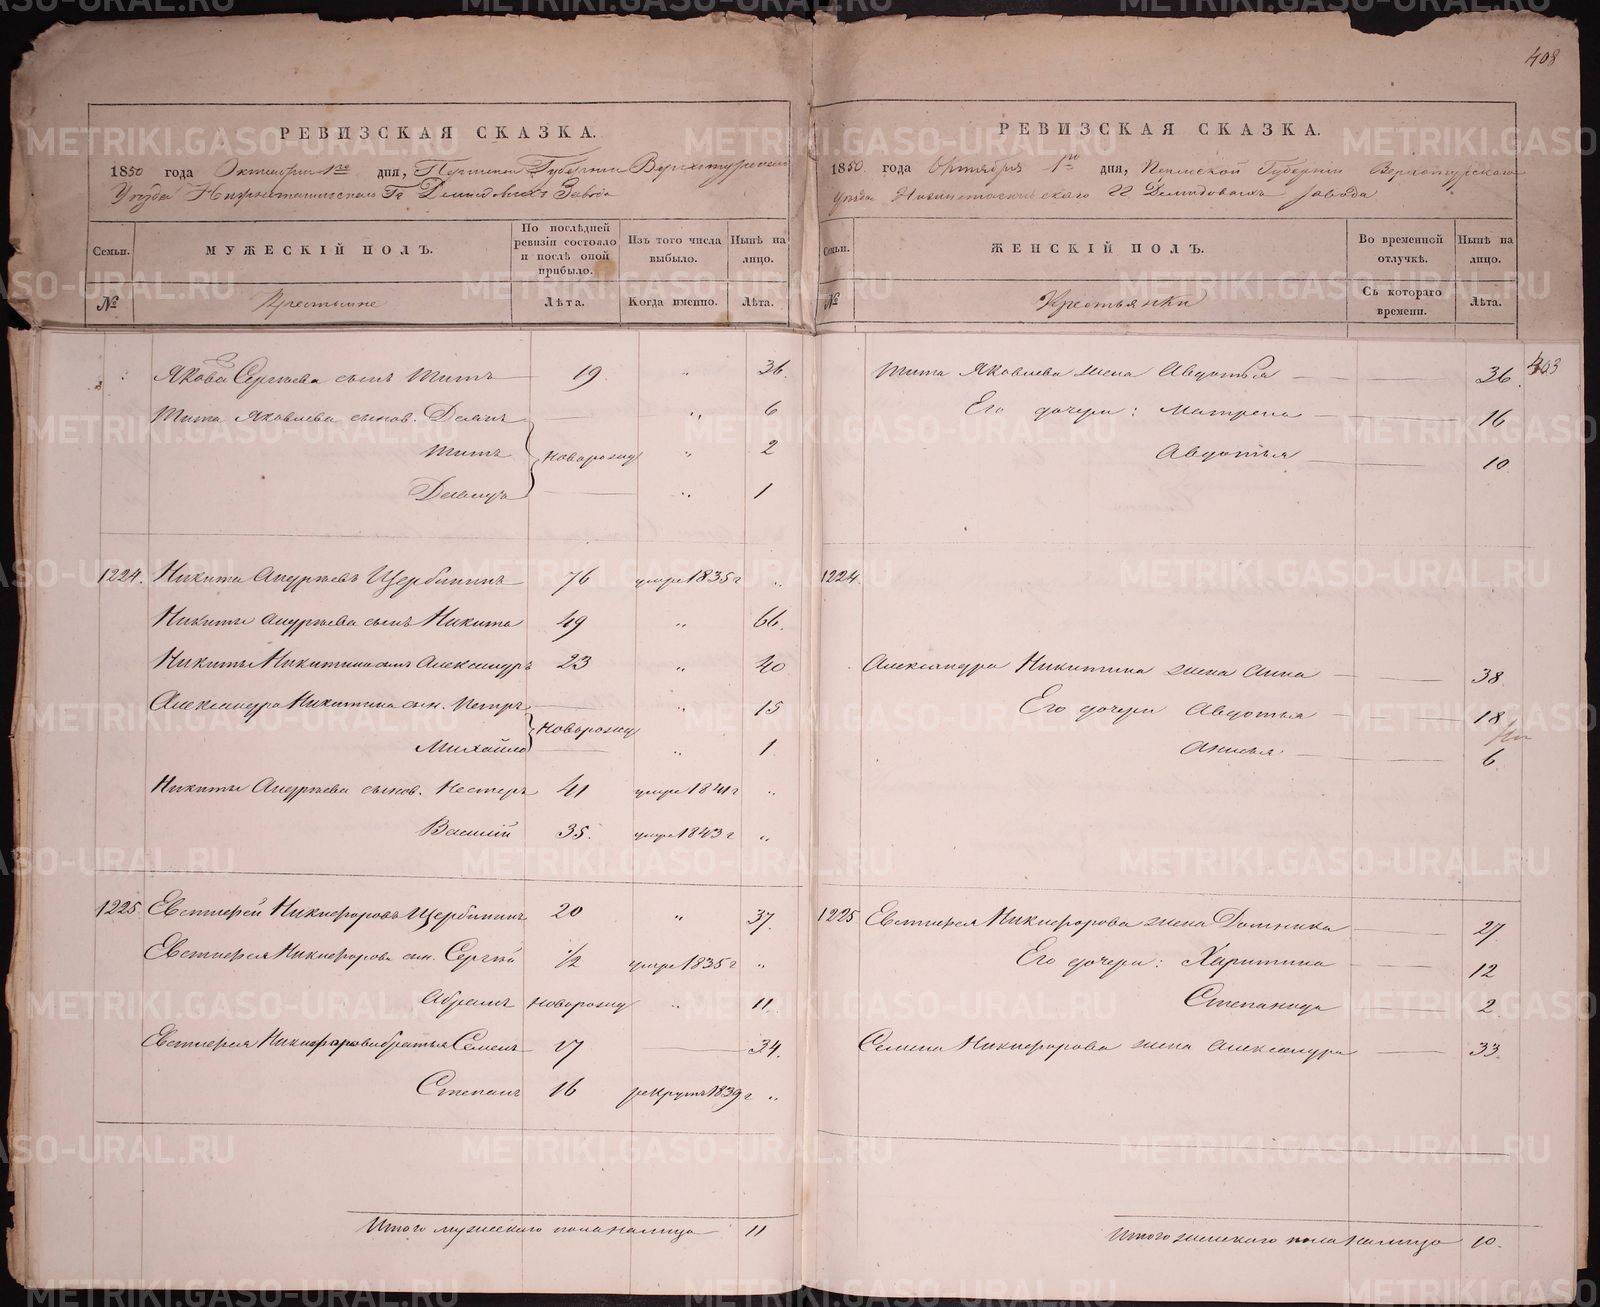 408
РЕВИЗСКАЯ СКАЗКА.
1850 года Октября 1го дня, Пермской Губернии Верхотурскаго
Уезда Нижнетагильскаго Гг Демидовыхъ Завода
Семьи. МУЖЕСКІЙ ПОЛЪ. По послѣдней ревизіи состояло и послѣ оной прибыло. Изъ того числа выбыло. Нынѣ на лицо.
№ Крестьяне Лѣта. Когда именно. Лѣта.
Якова Сергѣева сынъ Титъ 19. " 36.
Тита Яковлева сынов. Демидъ " 6
Титъ новорожд " 2
Давыдъ " 1
1224. Никита Андрѣевъ Щербининъ 76 умре 1835 г "
Никиты Андрѣева сынъ Никита 49 " 66.
Никиты Никитина сынъ Александръ 23 " 40
Александра Никитина сын. Петръ " 15
Михайло новорожд " 1
Никиты Андрѣева сынов. Нестеръ 41 умре 1841 г "
Василій 35. умре 1843 г "
1225. Евстифей Никифоровъ Щербининъ 20 " 37.
Евстифея Никифорова сын. Сергѣй 1/2 умре 1835 г "
Абрамъ новорожд " 11.
Евстифея Никифорова братья Семенъ 17 34.
Степанъ 16 рекрутъ 1839 г "
Итого мужескаго пола налицо 11
РЕВИЗСКАЯ СКАЗКА.
1850 года Октября 1го дня, Пермской Губерніи Верхотурскаго
Уезда Нижнетагильскаго гг Демидовыхъ завода
Семьи. ЖЕНСКІЙ ПОЛЪ. Во временной отлучкѣ. Нынѣ на лицо.
№ Крестьянки Съ котораго времени. Лѣта.
403
Тита Яковлева жена Авдотья 36.
Его дочери: Матрена 16
Авдотья 10
1224.
Александра Никитина жена Анна 38
Его дочери Авдотья 18
Анисья 6
1225 Евстифея Никифорова жена Домника 27
Его дочери: Харитина 12
Степанида 2.
Семена Никифорова жена Александра 33.
Итого женскаго пола налицо 10.
METRIKI.GASO-URAL.RU